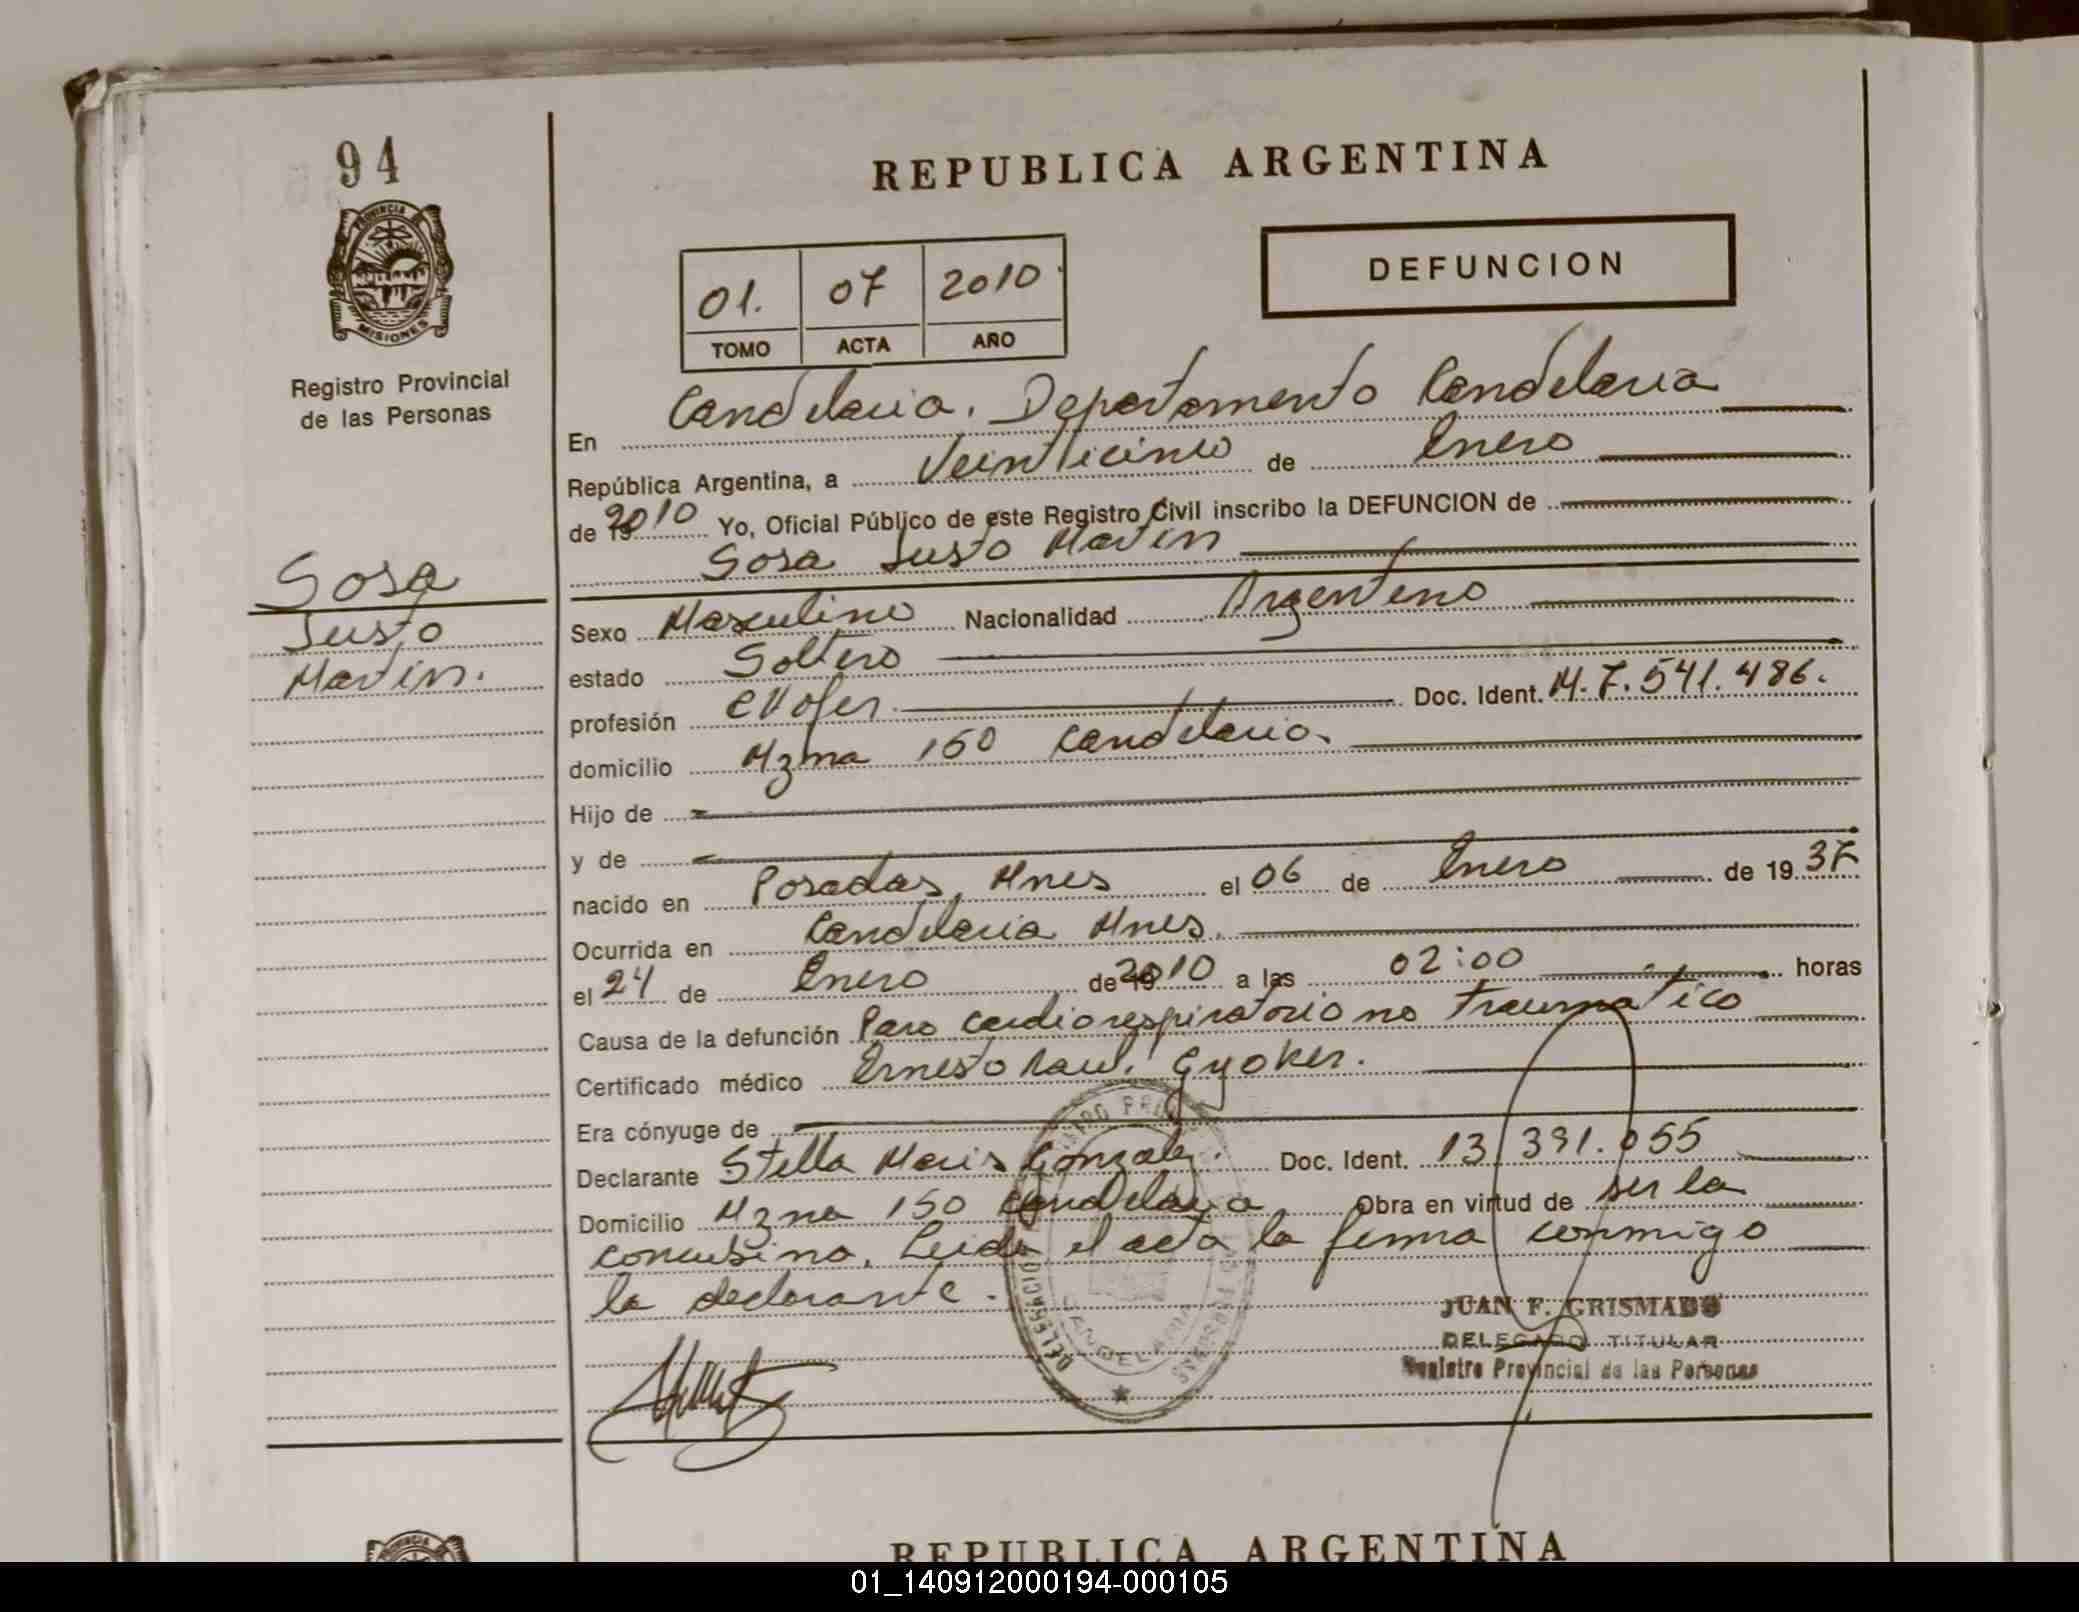 94
PROVINCIA DE
MISIONES
Registro Provincial
de las Personas
Sosa
Justo
Martin.
REPUBLICA ARGENTINA
DEFUNCION
01. 07 2010
TOMO ACTA AÑO
En Candelaria. Departamento Candelaria
República Argentina, a Veinticinco de Enero
de 2010 Yo, Oficial Público de este Registro Civil inscribo la DEFUNCION de
Sosa Justo Martin
Sexo Masculino Nacionalidad Argentino
estado Soltero
profesión Chofer Doc. Ident. M.7.541.486.
domicilio Mzna 150 Candelaria.
Hijo de
y de
nacido en Posadas, Mnes el 06 de Enero de 1937
Ocurrida en Candelaria Mnes.
el 24 de Enero de 2010 a las 02:00 horas
Causa de la defunción Paro cardiorespiratorio no traumatico
Certificado médico Ernesto Raul Gyoker.
Era cónyuge de
Declarante Stella Maris Gonzalez. Doc. Ident. 13.391.055
Domicilio Mzna 150 Candelaria Obra en virtud de ser la
concubina. Leida el acta la firma conmigo
la declarante.
JUAN F. GRISMADO
DELEGADO TITULAR
Registro Provincial de las Personas
DELEGACION CANDELARIA
REPUBLICA ARGENTINA
01_140912000194-000105